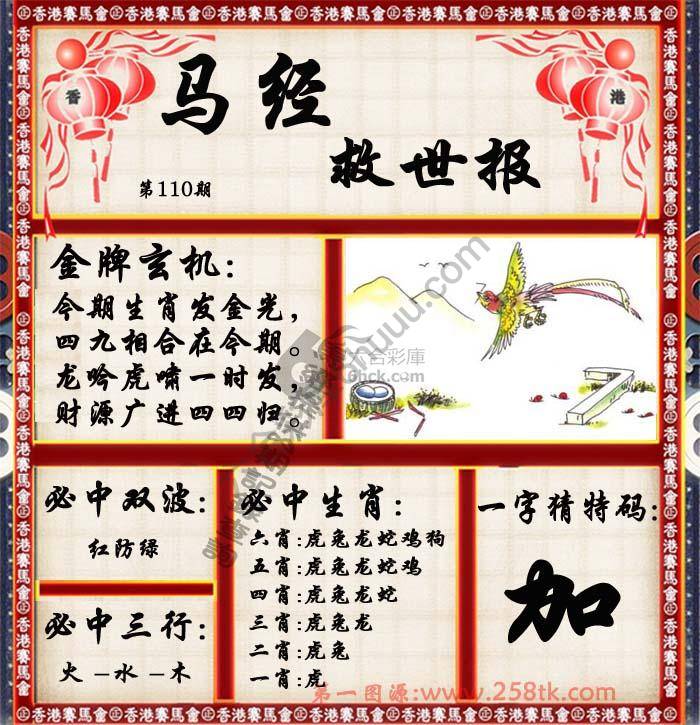 香港賽馬會
香 港
马经
救世报
第110期
金牌玄机:
今期生肖发金光,
四九相合在今期。
龙吟虎啸一时发,
财源广进四四归。
六合彩庫
必中双波:
红防绿
必中三行:
火-水-木
必中生肖:
六肖:虎兔龙蛇鸡狗
五肖:虎兔龙蛇鸡
四肖:虎兔龙蛇
三肖:虎兔龙
二肖:虎兔
一肖:虎
一字猜特码:
加
第一图源:www.258tk.com